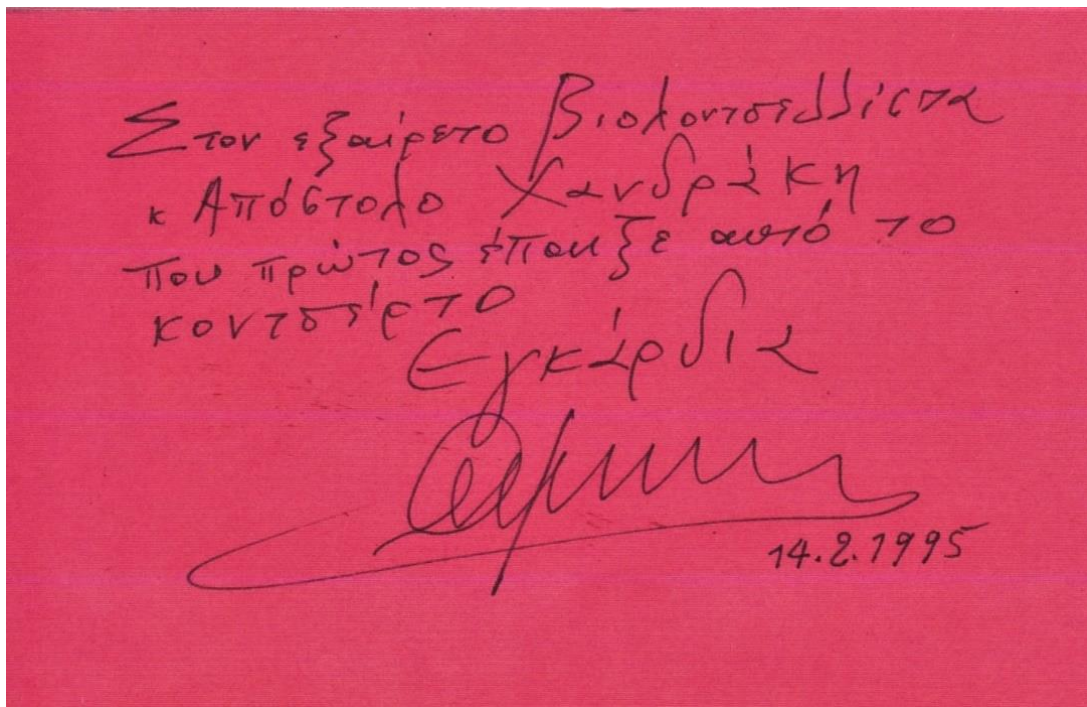 Στον εξαίρετο βιολοντσελλίστα
κ Απόστολο Χανδράκη
που πρώτος έπαιξε αυτό το
κοντσέρτο
Εγκάρδια
14.2.1995